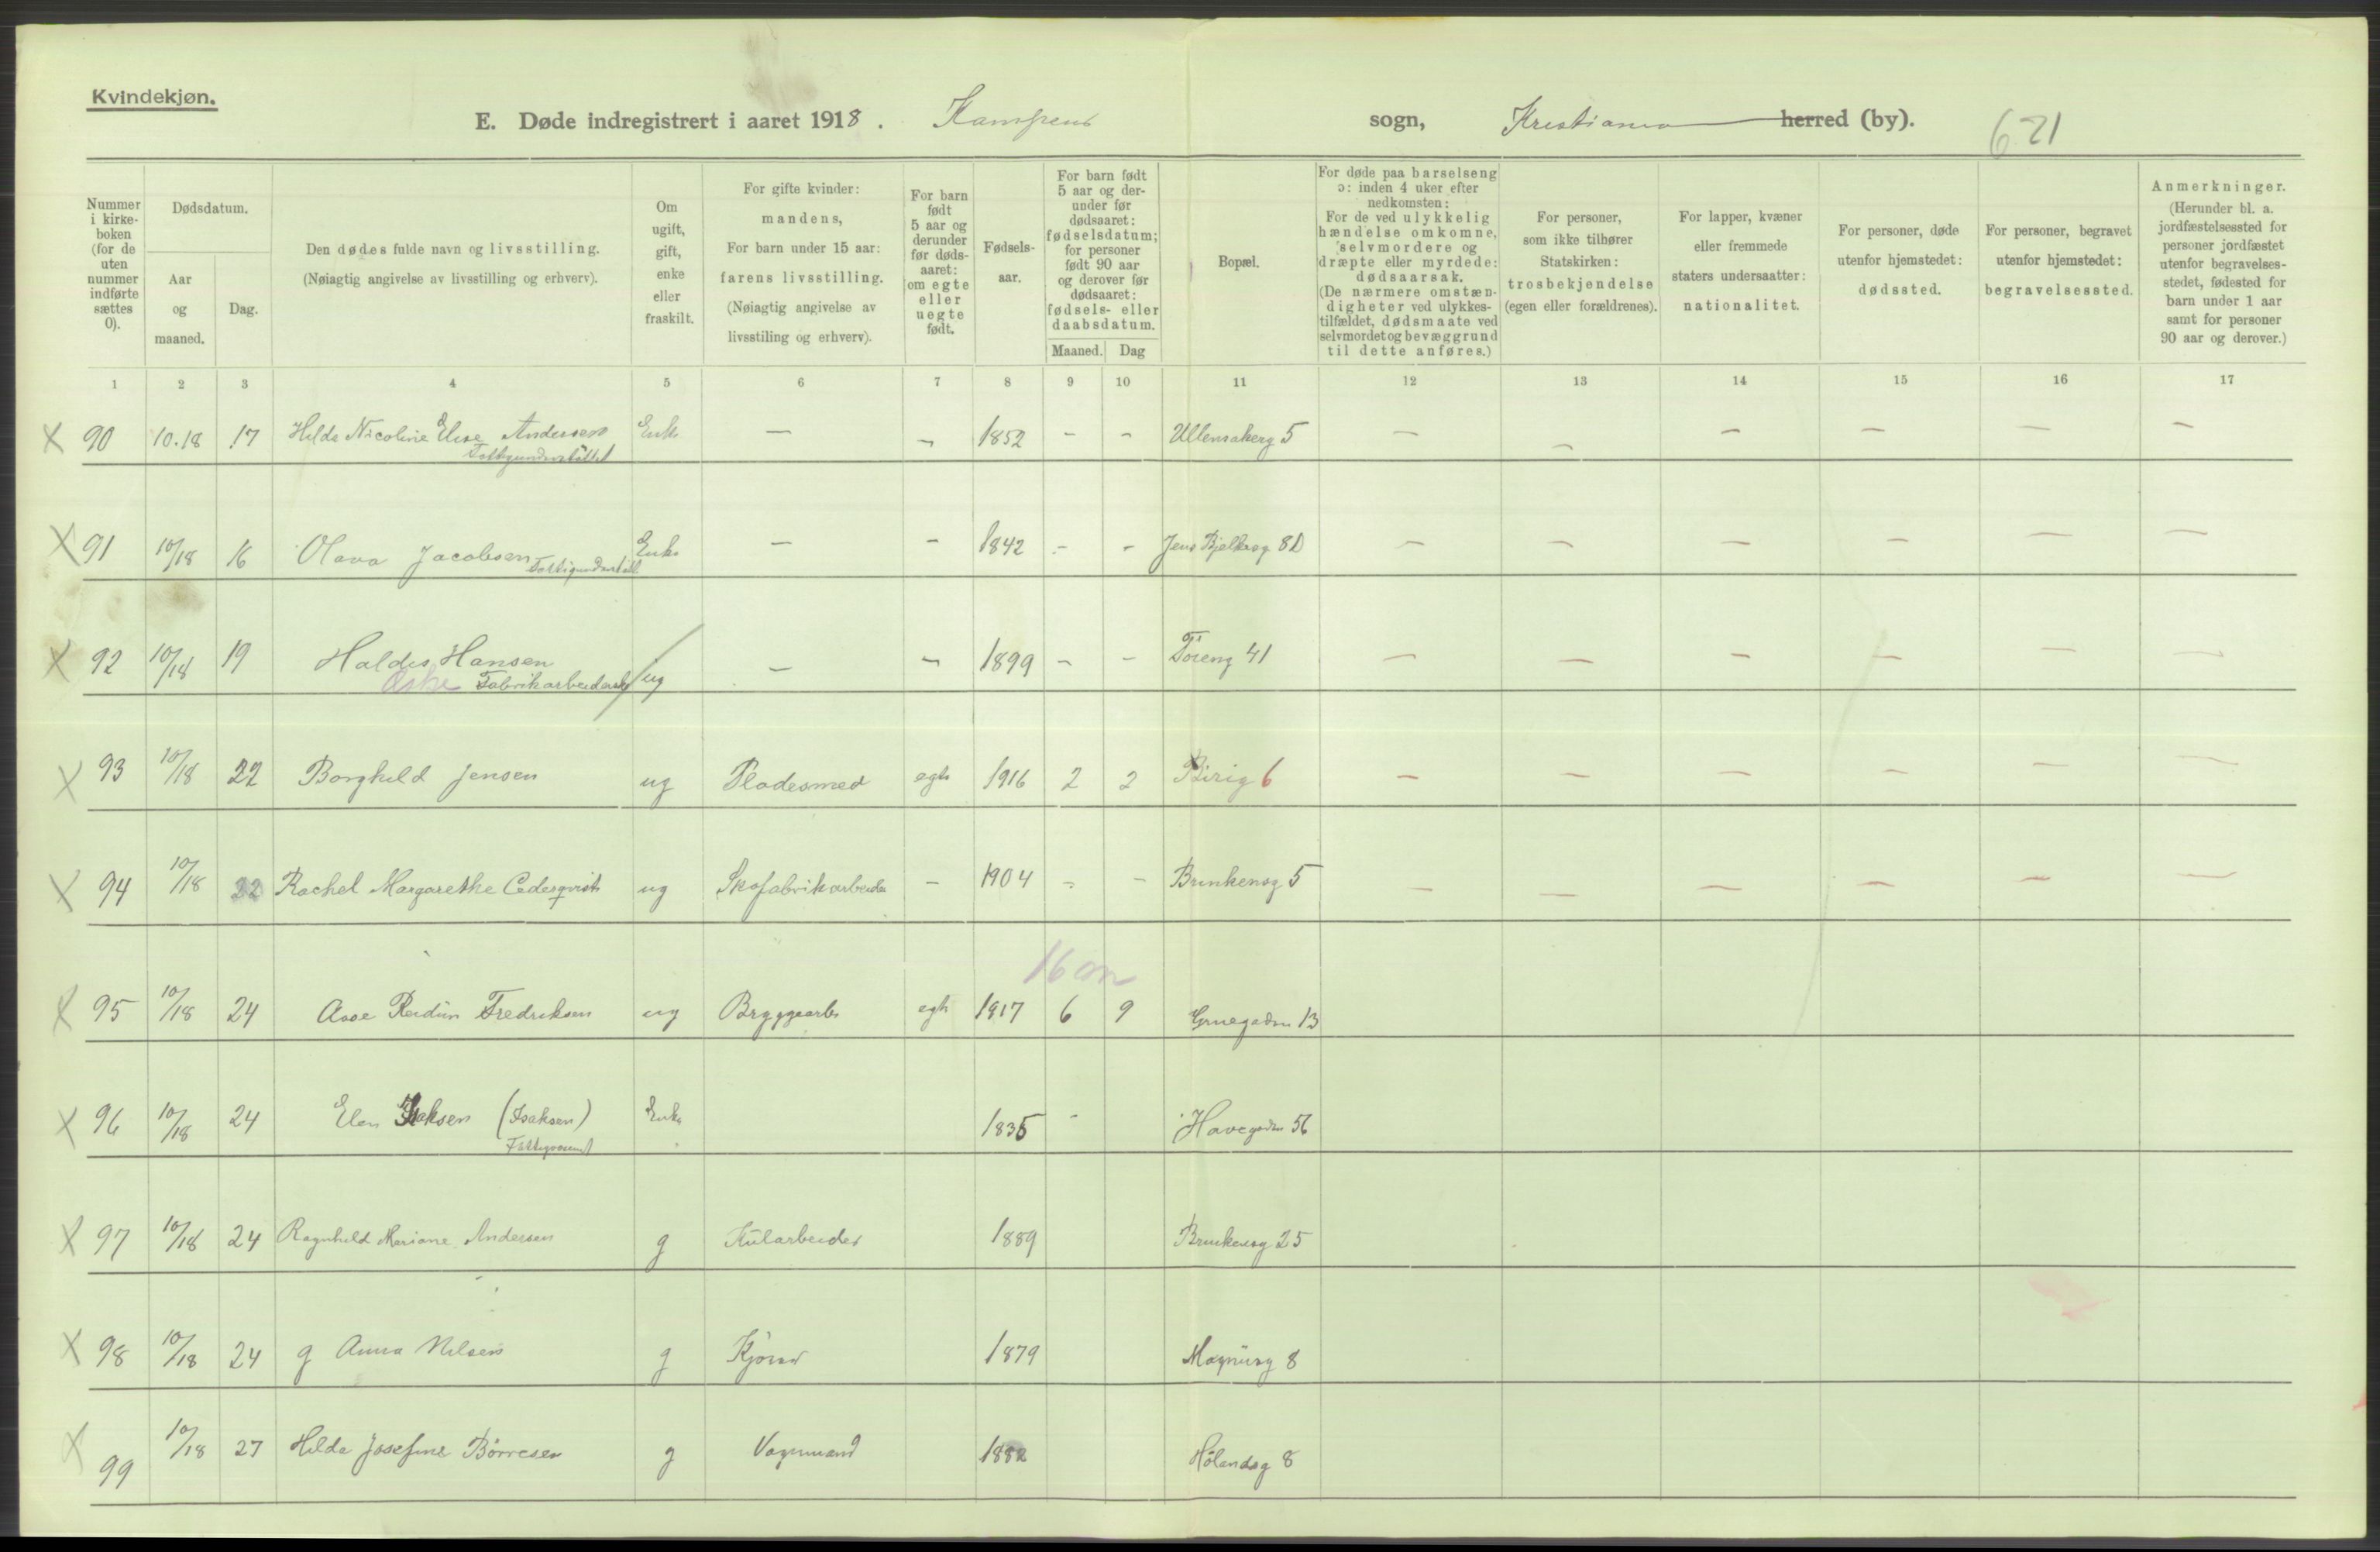 Kvindekjøn.
E. Døde indregistrert i aaret 1918. Kampens sogn, Kristiania herred (by). 621
Nummer i kirkeboken (for de uten nummer indførte sættes 0).
Dødsdatum.
Aar og maaned.
Dag.
Den dødes fulde navn og livsstilling. (Nøiagtig angivelse av livsstilling og erhverv).
Om ugift, gift, enke eller fraskilt.
For gifte kvinder: mandens, For barn under 15 aar: farens livsstilling. (Nøiagtig angivelse av livsstiling og erhverv).
For barn født 5 aar og derunder før dødsaaret: om egte eller uegte født.
Fødselsaar.
For barn født 5 aar og derunder før dødsaaret: fødselsdatum; for personer født 90 aar og derover før dødsaaret: fødsels- eller daabsdatum.
Maaned. Dag
Bopæl.
For døde paa barselseng ɔ: inden 4 uker efter nedkomsten: For de ved ulykkelig hændelse omkomne, selvmordere og dræpte eller myrdede: dødsaarsak. (De nærmere omstændigheter ved ulykkestilfældet, dødsmaate ved selvmordet og bevæggrund til dette anføres.)
For personer, som ikke tilhører Statskirken: trosbekjendelse (egen eller forældrenes).
For lapper, kvæner eller fremmede staters undersaatter: nationalitet.
For personer, døde utenfor hjemstedet: dødssted.
For personer, begravet utenfor hjemstedet: begravelsessted.
Anmerkninger. (Herunder bl. a. jordfæstelsessted for personer jordfæstet utenfor begravelsesstedet, fødested for barn under 1 aar samt for personer 90 aar og derover.)
1 2 3 4 5 6 7 8 9 10 11 12 13 14 15 16 17
X 90 10.18 17 Hilda Nicoline Elise Andersen Enke — — 1852 - - Ullensakerg 5 — — — — — —
Fattigunderstøttet
X 91 10/18 16 Olava Jacobsen Fattigunderstøtt Enke — — 1842 - - Jens Bjelkesg 8D — — — — — —
X 92 10/18 19 Haldis Hansen / ug — — 1899 - - Tøieng 41 — — — — — —
Æske Fabrikarbeiderske
X 93 10/18 22 Borghild Jensen ug Pladesmed egte 1916 2 2 Birig 6 — — — — — —
X 94 10/18 22 Rachel Margarethe Cederqvist ug Skofabrikarbeider - 1904 - - Brinkensg 5 — — — — — —
16 m
X 95 10/18 24 Aase Reidun Fredriksen ug Bryggearb egte 1917 6 9 Gruegaden 13
X 96 10/18 24 Elen Isaksen (Isaksen) Enke 1835 - Havegaden 56
X 97 10/18 24 Ragnhild Mariane Andersen g Kularbeider 1889 Brinkensg 25
X 98 10/18 24 g Anna Nilsen g Kjører 1879 Magnusg 8
X 99 10/18 27 Hilda Josefine Børresen g Vognmand 1882 Hølandsg 8